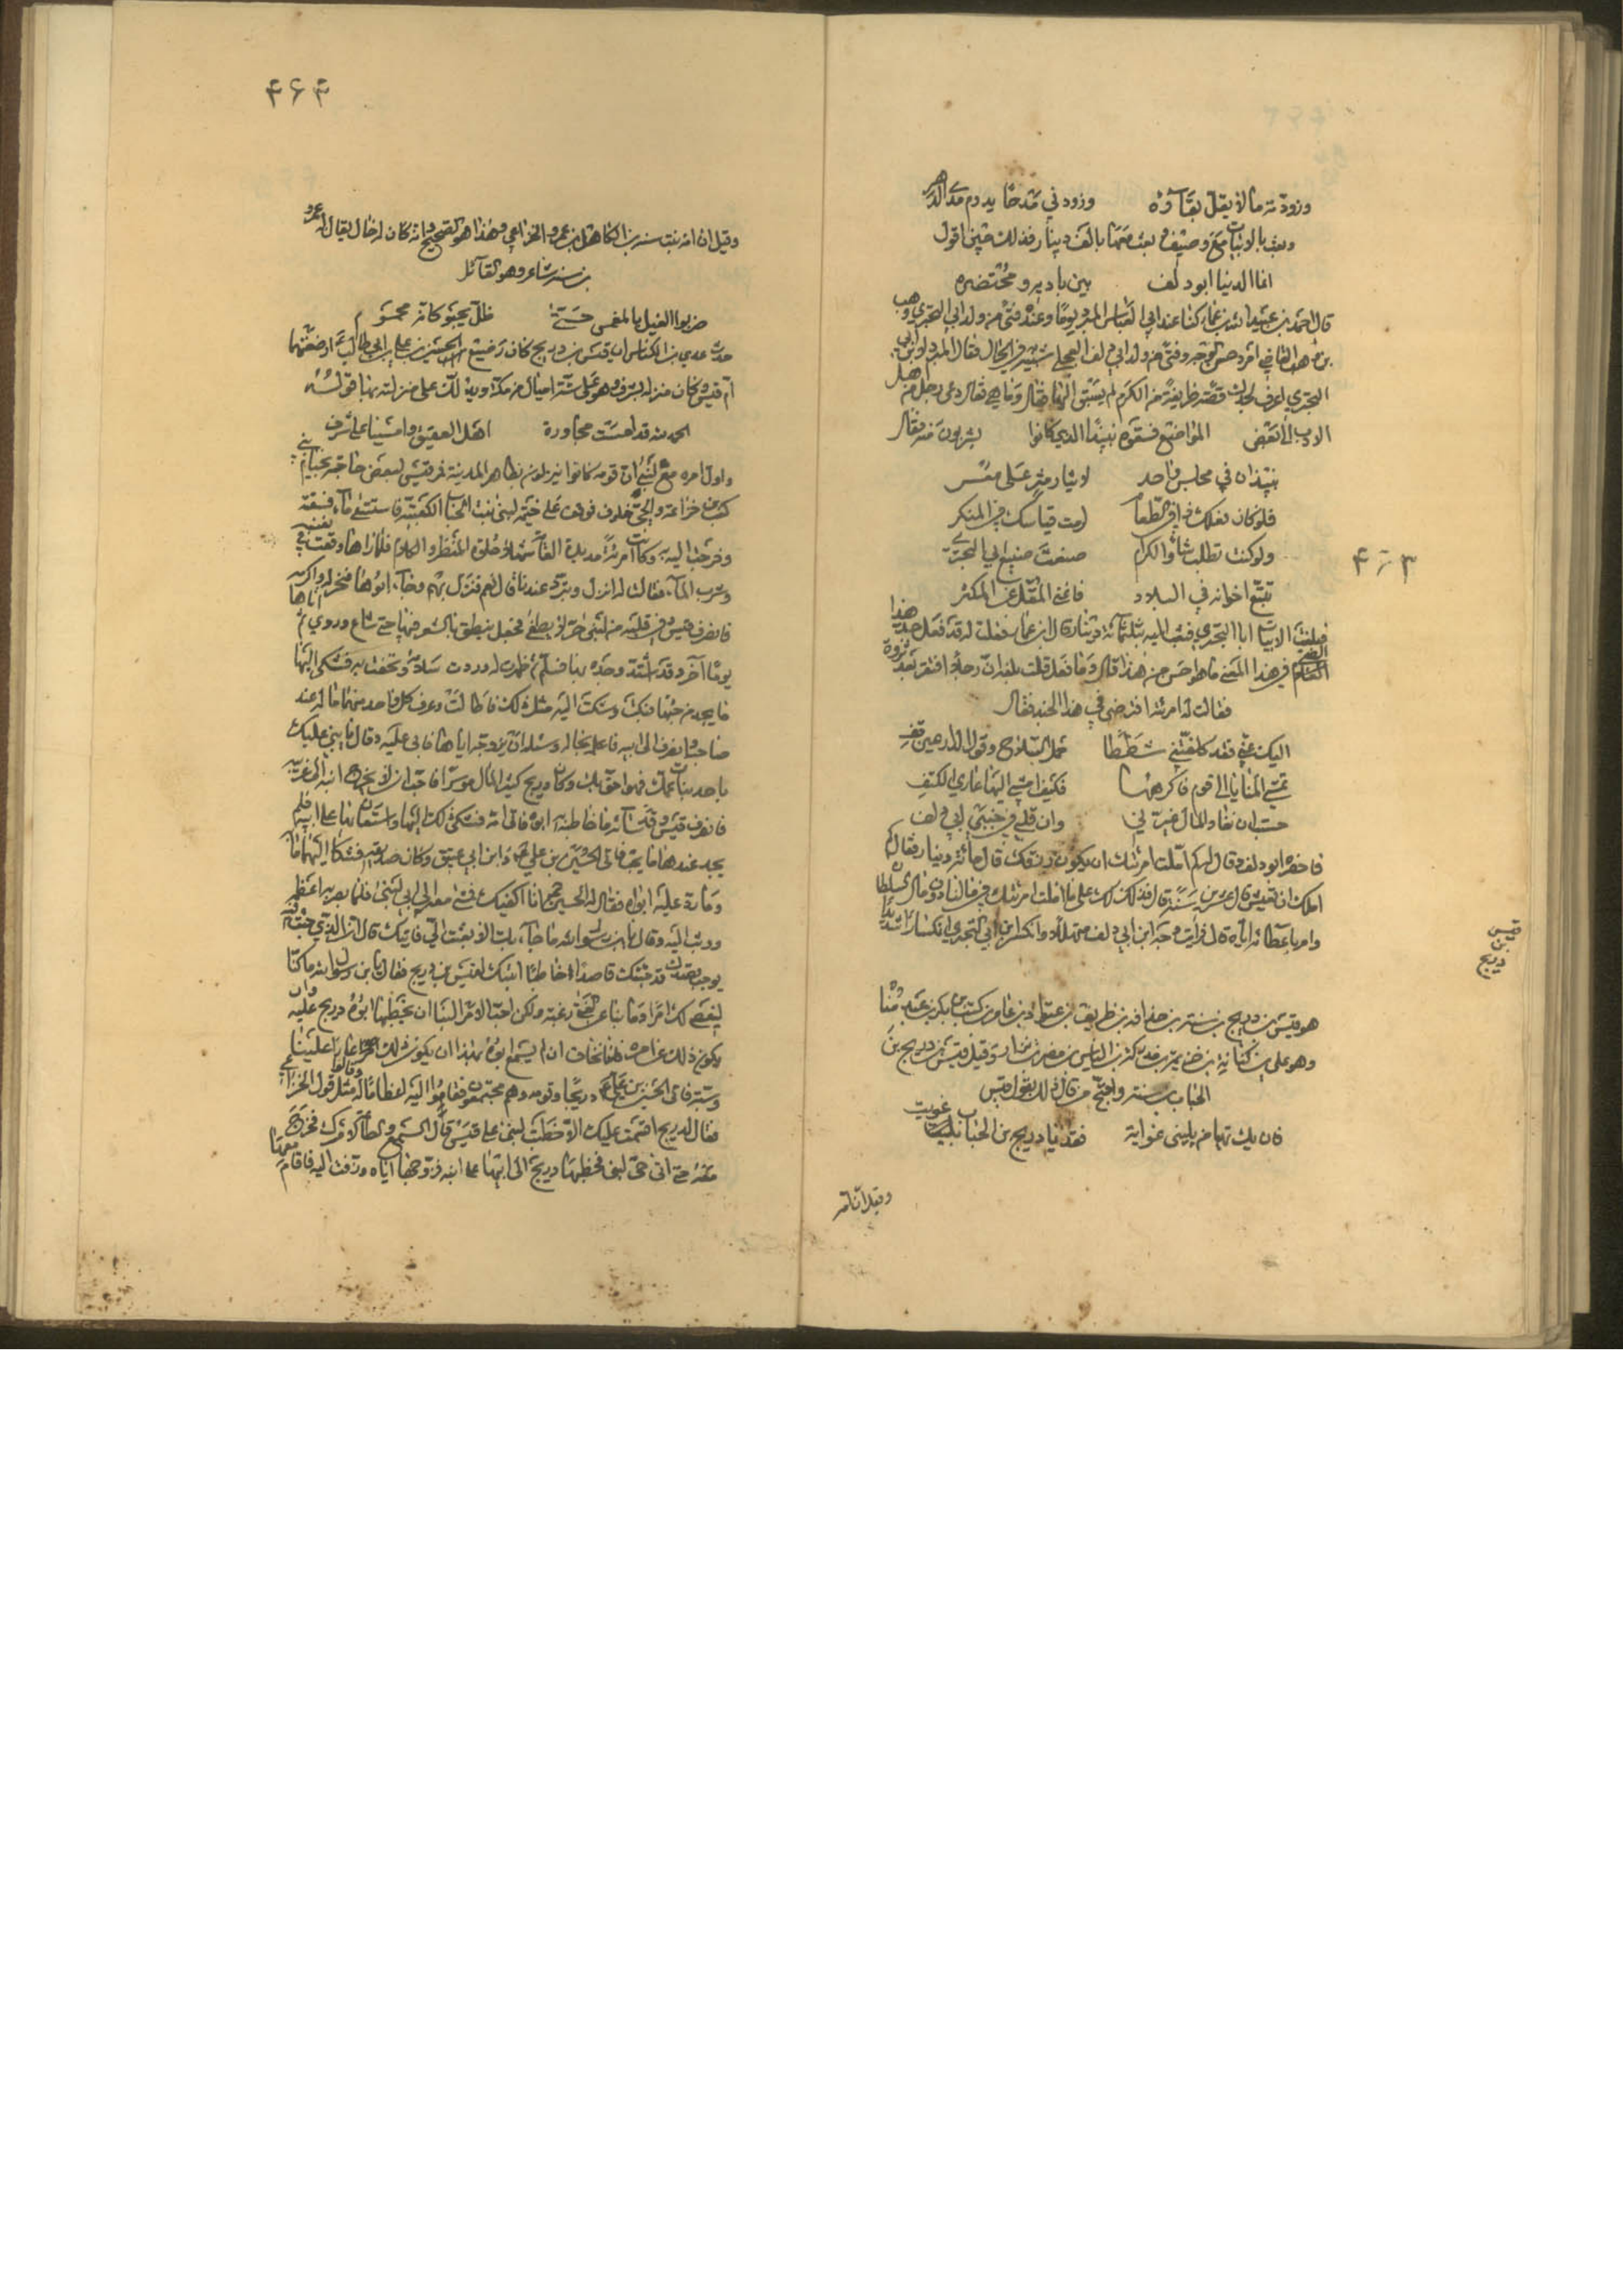 وزودته مالا يقل بقآؤه وزودني مدحا يدوم مدے الدهر
وبعث بالابيات مع وصيف وبعث معها بالف دينار فلذلك حين اقول
انما الدنيا ابو دلف بين باديه ومحتضره
قال احمد بن عبيد الله بن عمار كنا عند ابي العباس المبرد يوما وعنده فتى من ولد ابي البختري وهب
بن وهب القاضي امرد حسن الوجه وفتى من ولد ابي دلف العجلي شبيه في الجمال فقال المبرد لابن ابي
البختري اعرف لجدك قصة ظريفة من الكرم لم يسبق اليها فقال وما هي فقال دعي رجل من اهل
الادب الى بعض المواضع فسقوه نبيذا الذي كانوا يشربون منه فقال
نبيذان في مجلس واحد لايثار مثر على مقتر
فلو كان فعلك ذا في الطعام لزمت قياسك في المنكر
ولو كنت تطلب شأو الكرام صنعت صنيع ابي البختري
تتبع اخوانه في البلاد فاغنى المقل عن المكثر
فبلغت الابيات ابا البختري فبعث اليه بثلثمائة دينار قال ابن عمار فقلت له قد فعل جد هذا الفتى
في هذا المعنى ما هو احسن من هذا قال وما فعل قلت بلغه ان رجلا افتقر بعد ثروة
فقالت له امرئته افترض في هذا الجند فقال
اليك عني فقد كلفتني شططا حمل السلاح وقول الدارعين قف
تمشي المنايا الى قوم فاكرهها فكيف امشي اليها عاري الكتف
حسبت ان نفاد المال غيرني وان قلبي في جنبي ابي دلف
فاحضره ابو دلف وقال له كم املت امرئتك ان يكون رزقك قال مائة دينار فقال كم
املت ان تعيش قال عشرين سنة قال فذلك لك على ما املت امرئتك في مالنا دون مال السلطان
وامر باعطائه اياه قال فرأيت وجه ابن ابي دلف يتهلل وانكسر ابن ابي البختري انكسارا شديدا
قيس بن دريج
هو قيس بن دريج بن سنة بن حذافة بن طريف بن عتوارة بن عامر بن كعب بن بكر بن عبد مناة
وهو علي بن كنانة بن خزيمة بن مدركة بن الياس بن مضر بن نزار وقيل قيس بن دريج بن
الحباب بن سنة واحتج من قال ذلك بقول قيس
فان يك تهيامي بلبنى غواية فقد يا دريج بن الحباب غويت
وقيل ان امه
۴۶۳
۴۶۴
وقيل ان امه بنت سنة بن الكاهل بن عمرو الخزاعي وهذا هو الصحيح وانه كان له خال يقال له عمرو
بن سنة شاعر وهو القآئل
ضربوا الفيل بالمغمس حتى ظل يحبو كانه محموم
حدث عدي بن الكناس ان قيس بن دريج كان رضيع الحسين بن علي بن ابي طالب ارضعتهما
ام قيس وكان منزله بسرف وهو على ستة اميال من مكة ويدلك على منزلته بها قوله
الحمد لله قد امست مجاورة اهل العقيق وامسينا على سرف
واول امره مع لبنى ان قومه كانوا ينزلون بظاهر المدينة فمر قيس لبعض حاجته بخيام بني
كعب من خزاعة والحي خلوف فوقف على خيمة لبنى بنت الحباب الكعبية فاستسقى مآء فسقته
وخرجت اليه به وكانت امرئة مديدة القامة شهلاء حلوة المنظر والكلام فلما راها وقعت في نفسه
وشرب المآء فقالت له انزل وتبرد عندنا قال نعم فنزل بهم وجآء ابوها فنحر له واكرمه
فانصرف قيس وفي قلبه من لبنى حر لا يطفئ فجعل ينطق بالشعر فيها حتى شاع وروي ثم اتاها
يوما آخر وقد اشتد وجده بها فسلم فظهرت له وردت سلامه وتحفت به فشكى اليها
ما يجد من حبها فبكت وشكت اليه مثل ذلك فاطالت وعرف كل واحد منهما ما له عند
صاحبه وانصرف الى ابيه فاعلمه بحاله وسئله ان يزوجه اياها فابى عليه وقال يا بني عليك
باحد بنات عمك فهن احق بك وكان دريج كثير المال موسرا فاحب ان لا يخرج ابنه الى غريبة
فانصرف قيس وقد سآئه ما خاطبه ابوه فاتى امه فشكى ذلك اليها واستعان بها على ابيه فلم
يجد عندها ما يحب فاتى الحسين بن علي ع وابن ابي عتيق وكان صديقه فشكا اليهما ما به
وما رد عليه ابواه فقال له الحسين ع انا اكفيك فمشى معه الى ابي لبنى فلما بصر به اعظمه
ووثب اليه وقال يا بن رسول الله ما جآء بك الا بعثت الي فاتيك قال ان الذي جئت له
يوجب قصدك قد جئتك قاصدا خاطبا ابنتك لقيس بن دريج فقال يا بن رسول الله ما كنا
لنعصي لك امرا وما بنا عن الفتى رغبة ولكن احب الامر الينا ان يخطبها ابوه دريج عليه وان
يكون ذلك عن امره فانا نخاف ان لم يسع ابوه بهذا ان يكون ذلك عارا علينا
وسبة فاتى الحسين بن علي ع دريجا وقومه وهم مجتمعون فقاموا اليه اعظاما له وقالوا مثل قول الخزاعي
فقال لدريج اقسمت عليك الا خطبت لبنى على قيس قال السمع والطاعة لامرك فخرج
معه حتى اتى حي لبنى فخطبها دريج الى ابيها على ابنه فزوجها اياه وزفت اليه فاقام معها